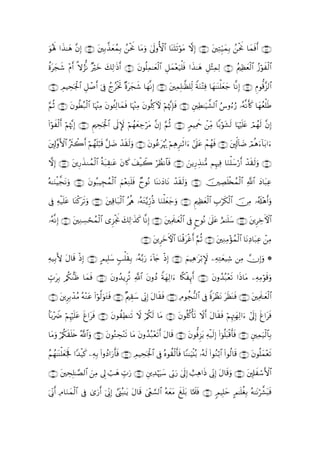 أَفَمَا نَحْنُ بِمَيِّتِينَ ۝ إِلَّا مَوْتَتَنَا الْأُولَىٰ وَمَا نَحْنُ بِمُعَذَّبِينَ ۝ إِنَّ هَٰذَا لَهُوَ
الْفَوْزُ الْعَظِيمُ ۝ لِمِثْلِ هَٰذَا فَلْيَعْمَلِ الْعَامِلُونَ ۝ أَذَٰلِكَ خَيْرٌ نُّزُلًا أَمْ شَجَرَةُ
الزَّقُّومِ ۝ إِنَّا جَعَلْنَاهَا فِتْنَةً لِّلظَّالِمِينَ ۝ إِنَّهَا شَجَرَةٌ تَخْرُجُ فِي أَصْلِ الْجَحِيمِ ۝
طَلْعُهَا كَأَنَّهُ رُءُوسُ الشَّيَاطِينِ ۝ فَإِنَّهُمْ لَآكِلُونَ مِنْهَا فَمَالِئُونَ مِنْهَا الْبُطُونَ ۝ ثُمَّ
إِنَّ لَهُمْ عَلَيْهَا لَشَوْبًا مِّنْ حَمِيمٍ ۝ ثُمَّ إِنَّ مَرْجِعَهُمْ لَإِلَى الْجَحِيمِ ۝ إِنَّهُمْ أَلْفَوْا
آبَاءَهُمْ ضَالِّينَ ۝ فَهُمْ عَلَىٰ آثَارِهِمْ يُهْرَعُونَ ۝ وَلَقَدْ ضَلَّ قَبْلَهُمْ أَكْثَرُ الْأَوَّلِينَ
۝ وَلَقَدْ أَرْسَلْنَا فِيهِم مُّنذِرِينَ ۝ فَانظُرْ كَيْفَ كَانَ عَاقِبَةُ الْمُنذَرِينَ ۝ إِلَّا
عِبَادَ اللَّهِ الْمُخْلَصِينَ ۝ وَلَقَدْ نَادَانَا نُوحٌ فَلَنِعْمَ الْمُجِيبُونَ ۝ وَنَجَّيْنَاهُ
وَأَهْلَهُ مِنَ الْكَرْبِ الْعَظِيمِ ۝ وَجَعَلْنَا ذُرِّيَّتَهُ هُمُ الْبَاقِينَ ۝ وَتَرَكْنَا عَلَيْهِ فِي
الْآخِرِينَ ۝ سَلَامٌ عَلَىٰ نُوحٍ فِي الْعَالَمِينَ ۝ إِنَّا كَذَٰلِكَ نَجْزِي الْمُحْسِنِينَ ۝ إِنَّهُ
مِنْ عِبَادِنَا الْمُؤْمِنِينَ ۝ ثُمَّ أَغْرَقْنَا الْآخَرِينَ ۝
۞ وَإِنَّ مِن شِيعَتِهِ لَإِبْرَاهِيمَ ۝ إِذْ جَاءَ رَبَّهُ بِقَلْبٍ سَلِيمٍ ۝ إِذْ قَالَ لِأَبِيهِ
وَقَوْمِهِ مَاذَا تَعْبُدُونَ ۝ أَئِفْكًا آلِهَةً دُونَ اللَّهِ تُرِيدُونَ ۝ فَمَا ظَنُّكُم بِرَبِّ
الْعَالَمِينَ ۝ فَنَظَرَ نَظْرَةً فِي النُّجُومِ ۝ فَقَالَ إِنِّي سَقِيمٌ ۝ فَتَوَلَّوْا عَنْهُ مُدْبِرِينَ ۝
فَرَاغَ إِلَىٰ آلِهَتِهِمْ فَقَالَ أَلَا تَأْكُلُونَ ۝ مَا لَكُمْ لَا تَنطِقُونَ ۝ فَرَاغَ عَلَيْهِمْ ضَرْبًا
بِالْيَمِينِ ۝ فَأَقْبَلُوا إِلَيْهِ يَزِفُّونَ ۝ قَالَ أَتَعْبُدُونَ مَا تَنْحِتُونَ ۝ وَاللَّهُ خَلَقَكُمْ وَمَا
تَعْمَلُونَ ۝ قَالُوا ابْنُوا لَهُ بُنْيَانًا فَأَلْقُوهُ فِي الْجَحِيمِ ۝ فَأَرَادُوا بِهِ كَيْدًا فَجَعَلْنَاهُمُ
الْأَسْفَلِينَ ۝ وَقَالَ إِنِّي ذَاهِبٌ إِلَىٰ رَبِّي سَيَهْدِينِ ۝ رَبِّ هَبْ لِي مِنَ الصَّالِحِينَ ۝
فَبَشَّرْنَاهُ بِغُلَامٍ حَلِيمٍ ۝ فَلَمَّا بَلَغَ مَعَهُ السَّعْيَ قَالَ يَا بُنَيَّ إِنِّي أَرَىٰ فِي الْمَنَامِ أَنِّي